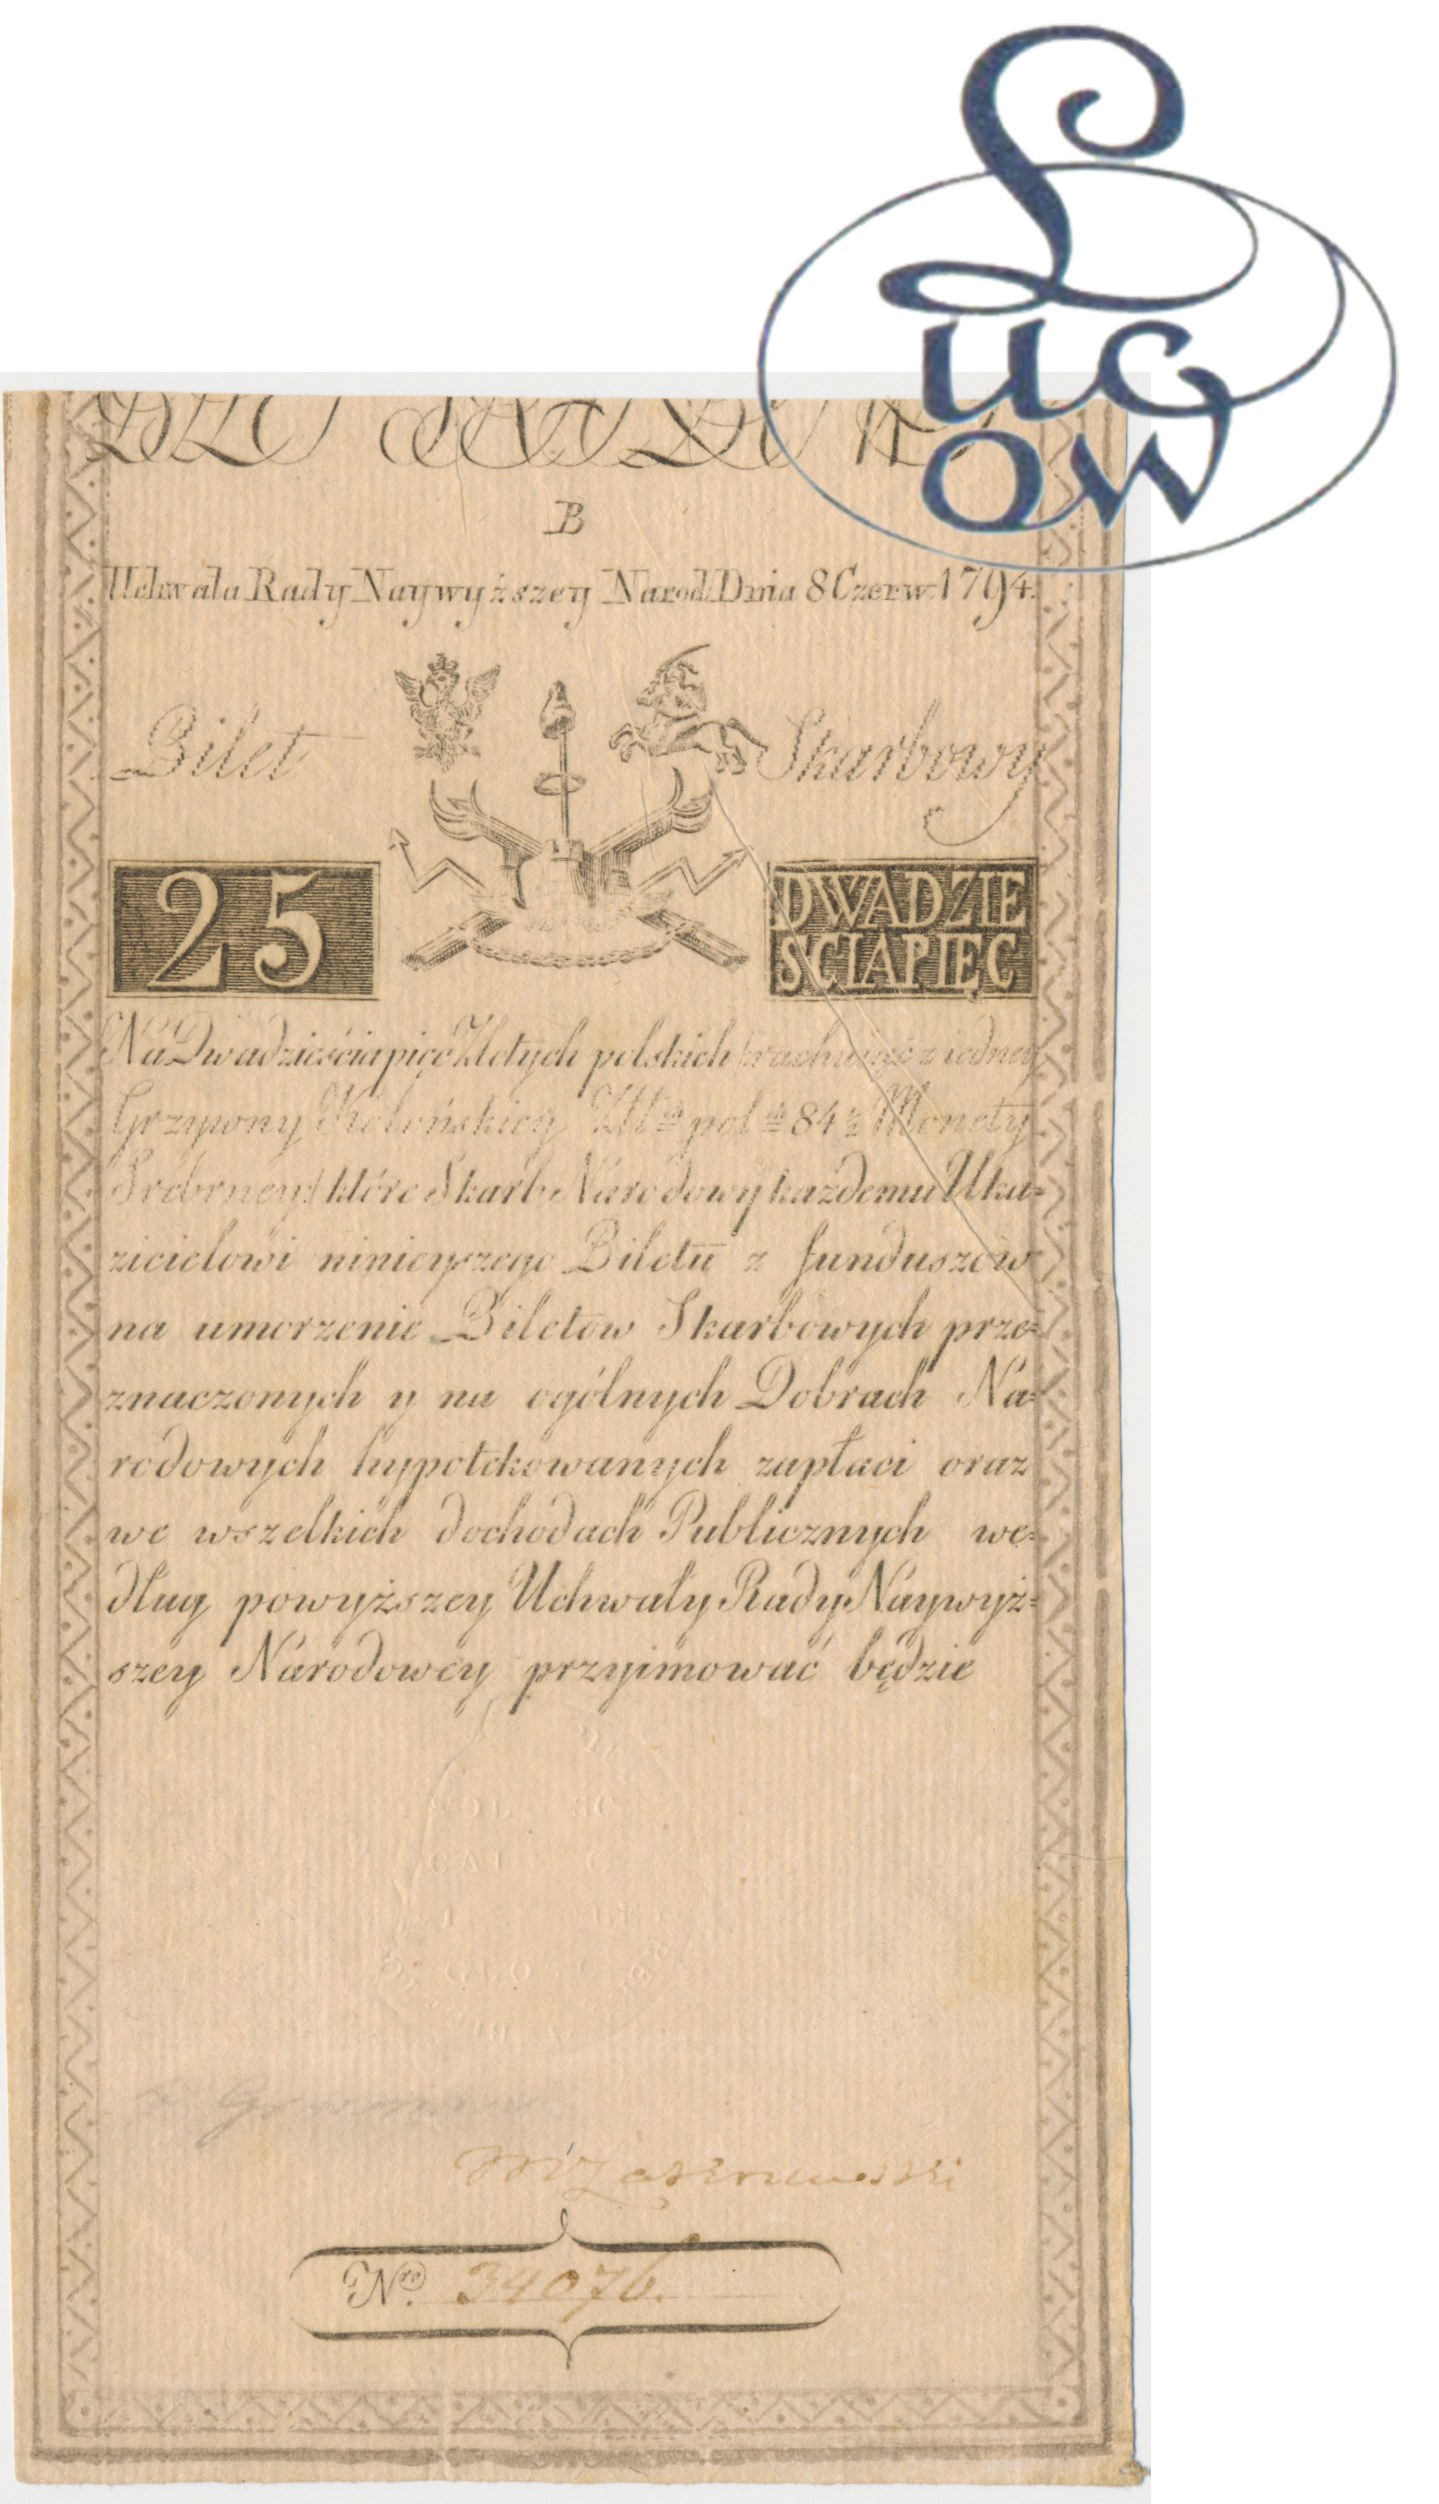 Ługow
B
Uchwała Rady Naywyższey Narod: Dnia 8 Czerw: 1794.
Bilet Skarbowy
25 DWADZIE
SCIAPIĘC
Na Dwadzieściapięć Złotych polskich /rachuiąc z iedney
Grzywny Kolońskiey Złt.ch pol.ch 84½ Monety
Srebrney/ które Skarb Narodowy każdemu Uka=
zicielowi ninieyszego Biletu z funduszów
na umorzenie Biletow Skarbowych prze=
znaczonych y na ogólnych Dobrach Na=
rodowych hypotekowanych zapłaci oraz
we wszelkich dochodach Publicznych we=
dług powyższey Uchwały Rady Naywyż=
szey Narodowey przyimować będzie
Nro. 34076.